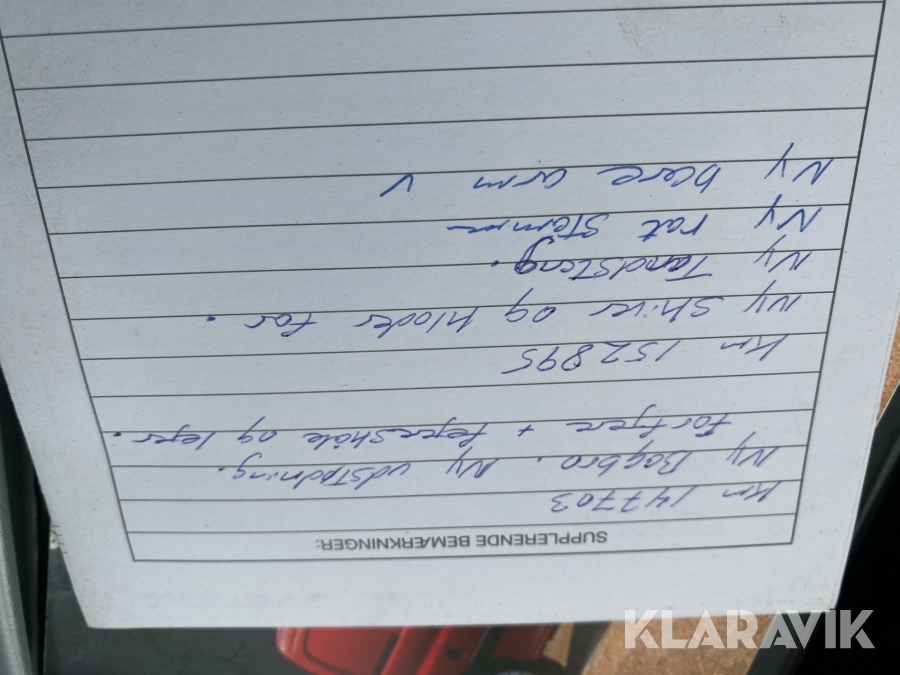 SUPPLERENDE BEMÆRKNINGER:
Km 147703
Ny Bagbro. Ny udstødning.
For fjere + fejerskåle og lejer.
Km 152895
Ny Skiver og kloder for.
Ny Tandstang.
Ny rat Stamme
Ny bære arm V
KLARAVIK